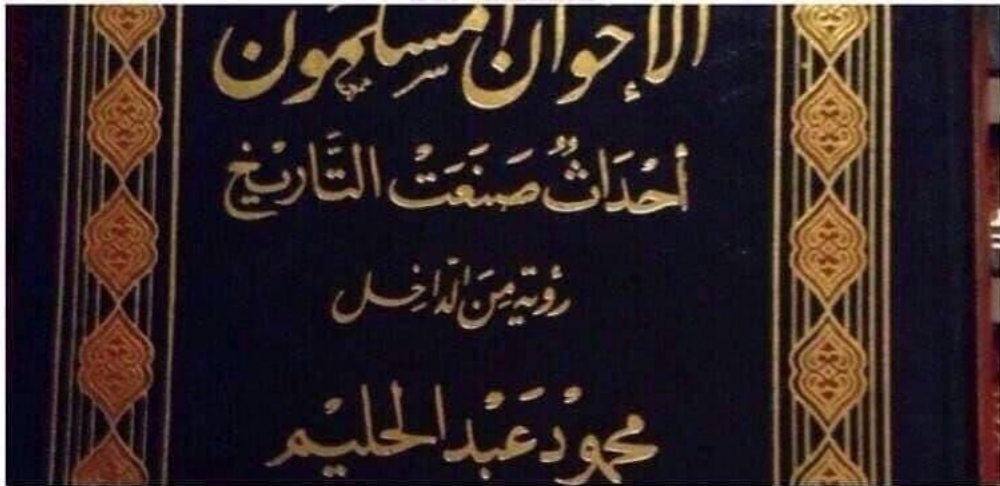 الإخوان المسلمون
أَحْدَاثٌ صَنَعَتْ التَّارِيْخ
رؤية مِنَ الدّاخِل
محمُوْد عَبْد الحليْم